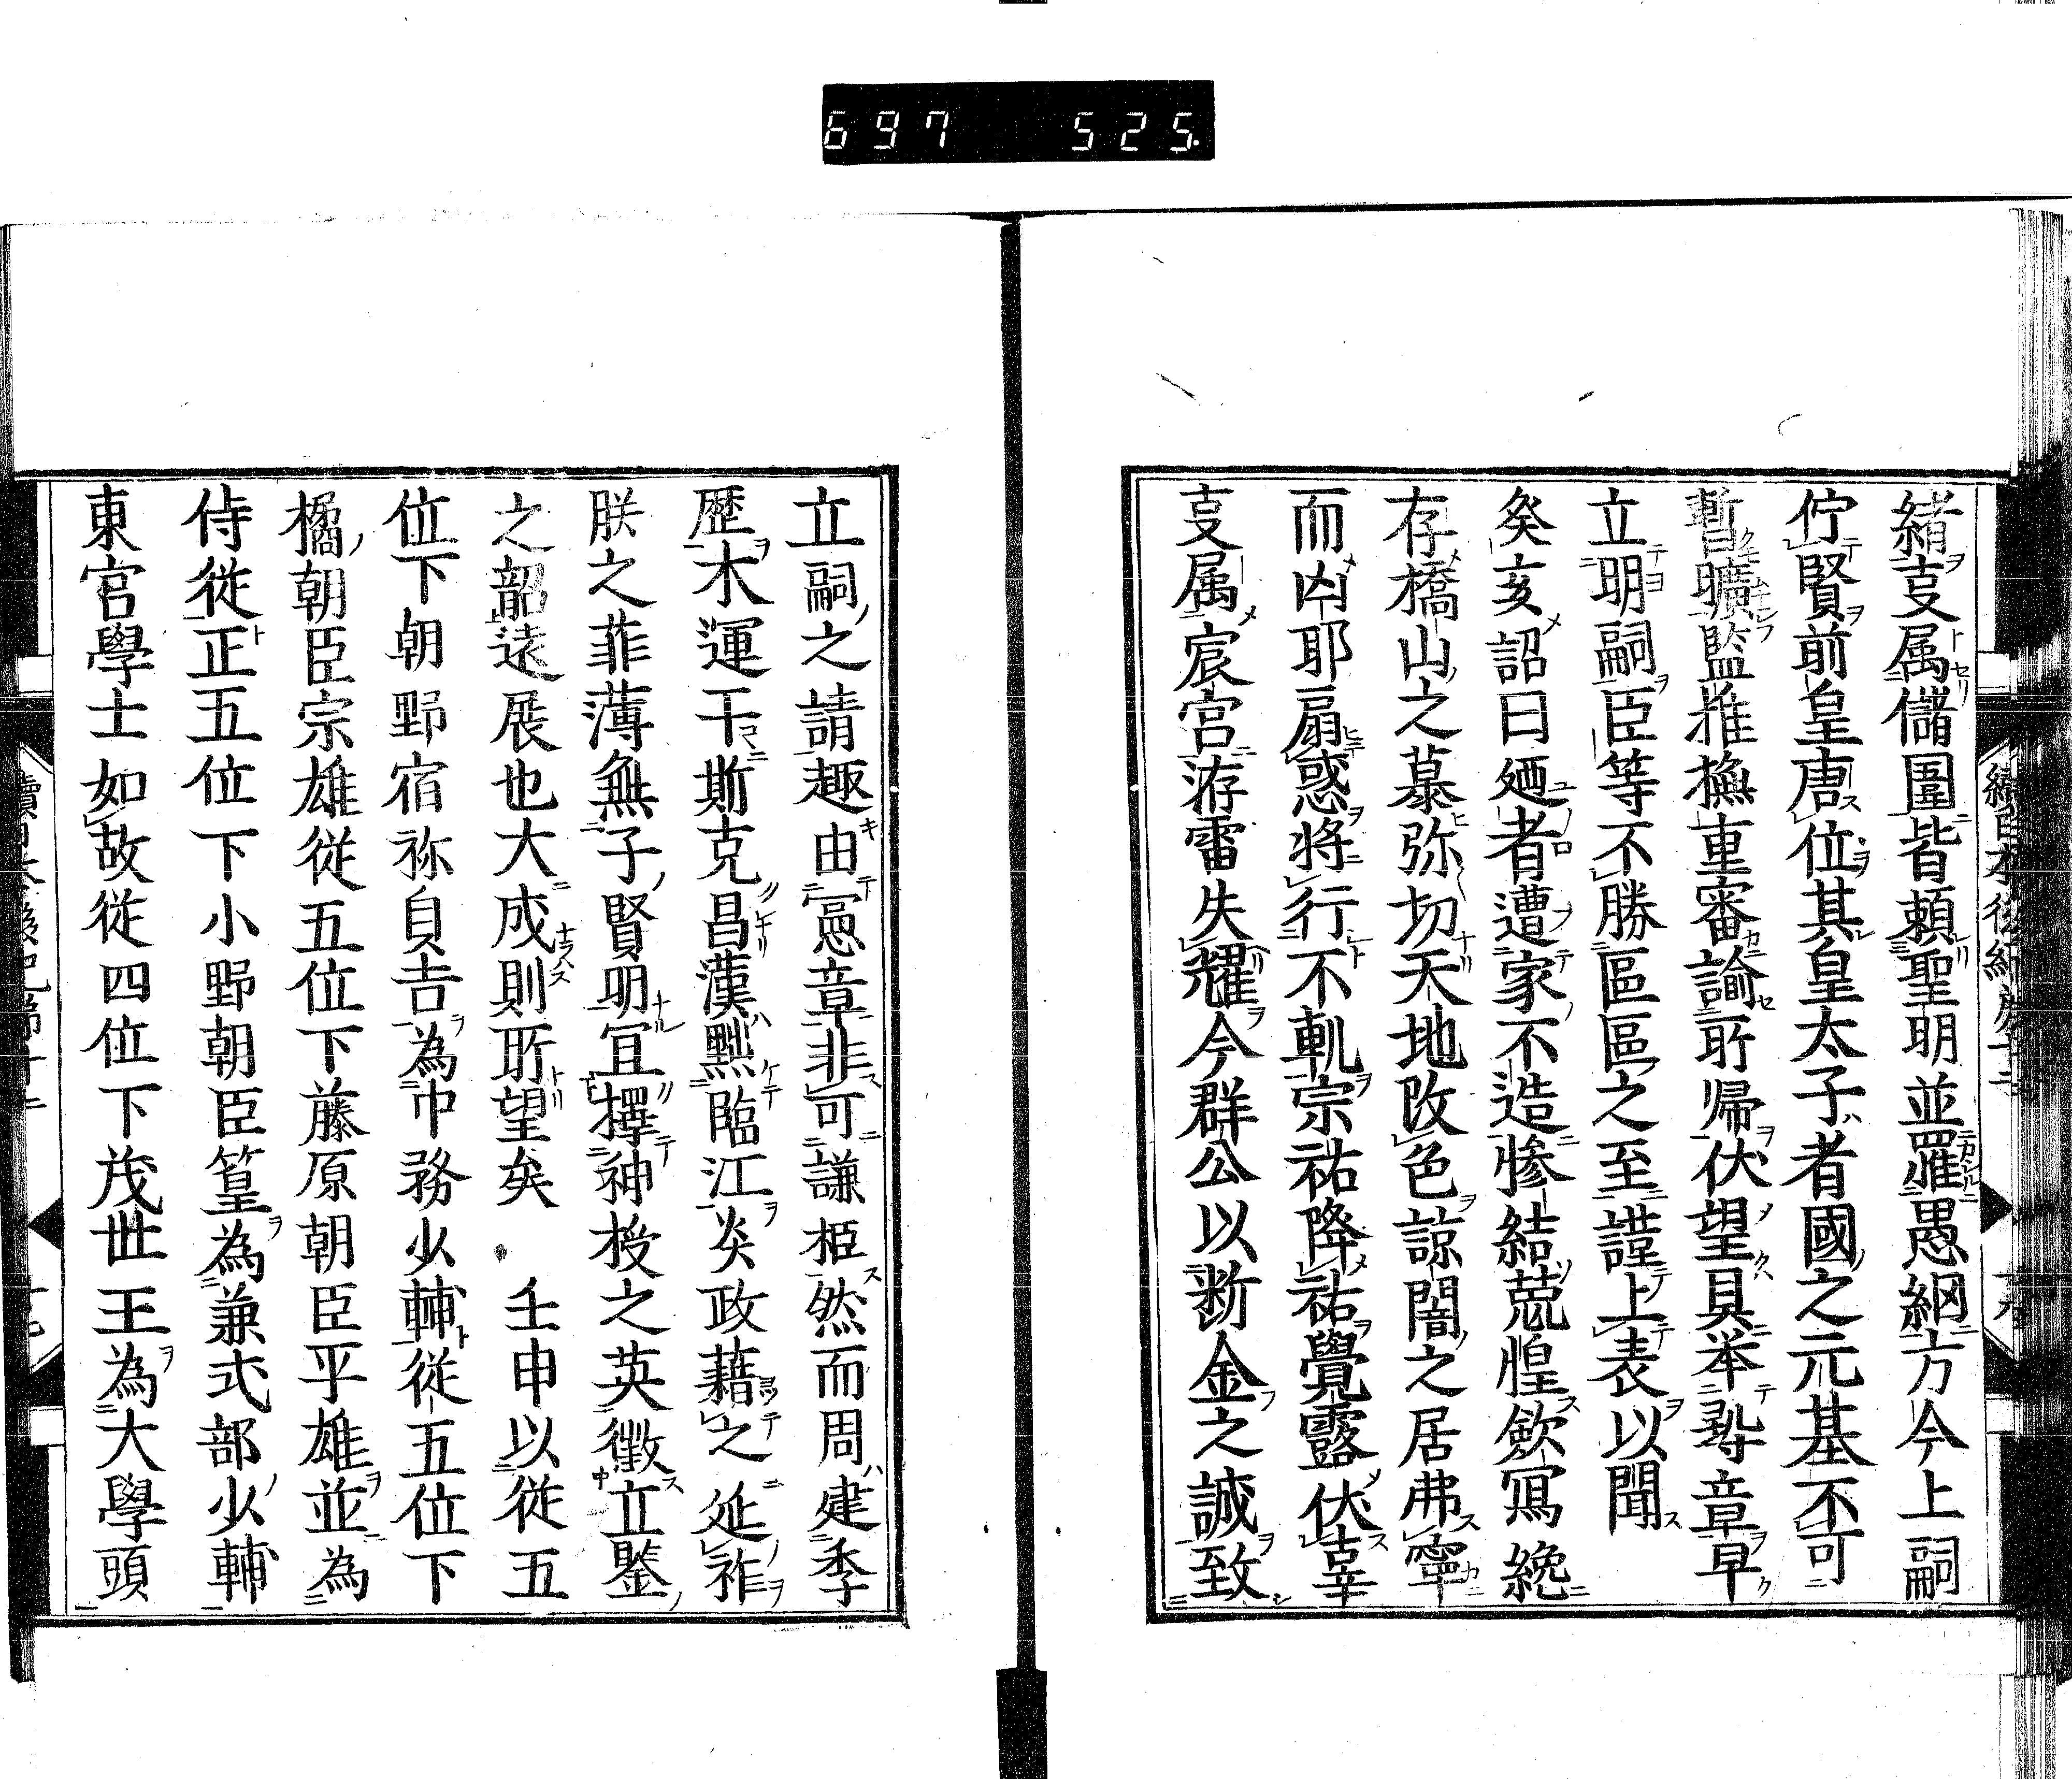 697 525
緒叓属儲圍皆頼聖明並羅愚綱方今上嗣
佇賢前皇唐位其皇太子者國之元基不可
暫曠監推撫重審諭所帰伏望具举尋章早
立明嗣臣等不勝區區之至謹上表以聞
癸亥詔曰廼者遭家不造惨結煢惶歛冩纔
存橋山之慕弥切天地改色諒闇之居弗寧
而凶耶扇惑將行不軌宗祐降祐覺露伏辜
叓属宸宮洊雷失耀今群公以断金之誠致
立嗣之請趣由憲章非可謙拒然而周建季
歴木運干斯克昌漢黙臨江炎政藉之延祚
朕之菲薄無子賢明冝擇神授之英徴立鑒
之韶遠展也大成則所望矣 壬申以従五
位下朝野宿祢貞吉為中務少輔従五位下
橘朝臣宗雄従五位下藤原朝臣平雄並為
侍従正五位下小野朝臣篁為兼式部少輔
東宮學士如故従四位下茂世王為大學頭